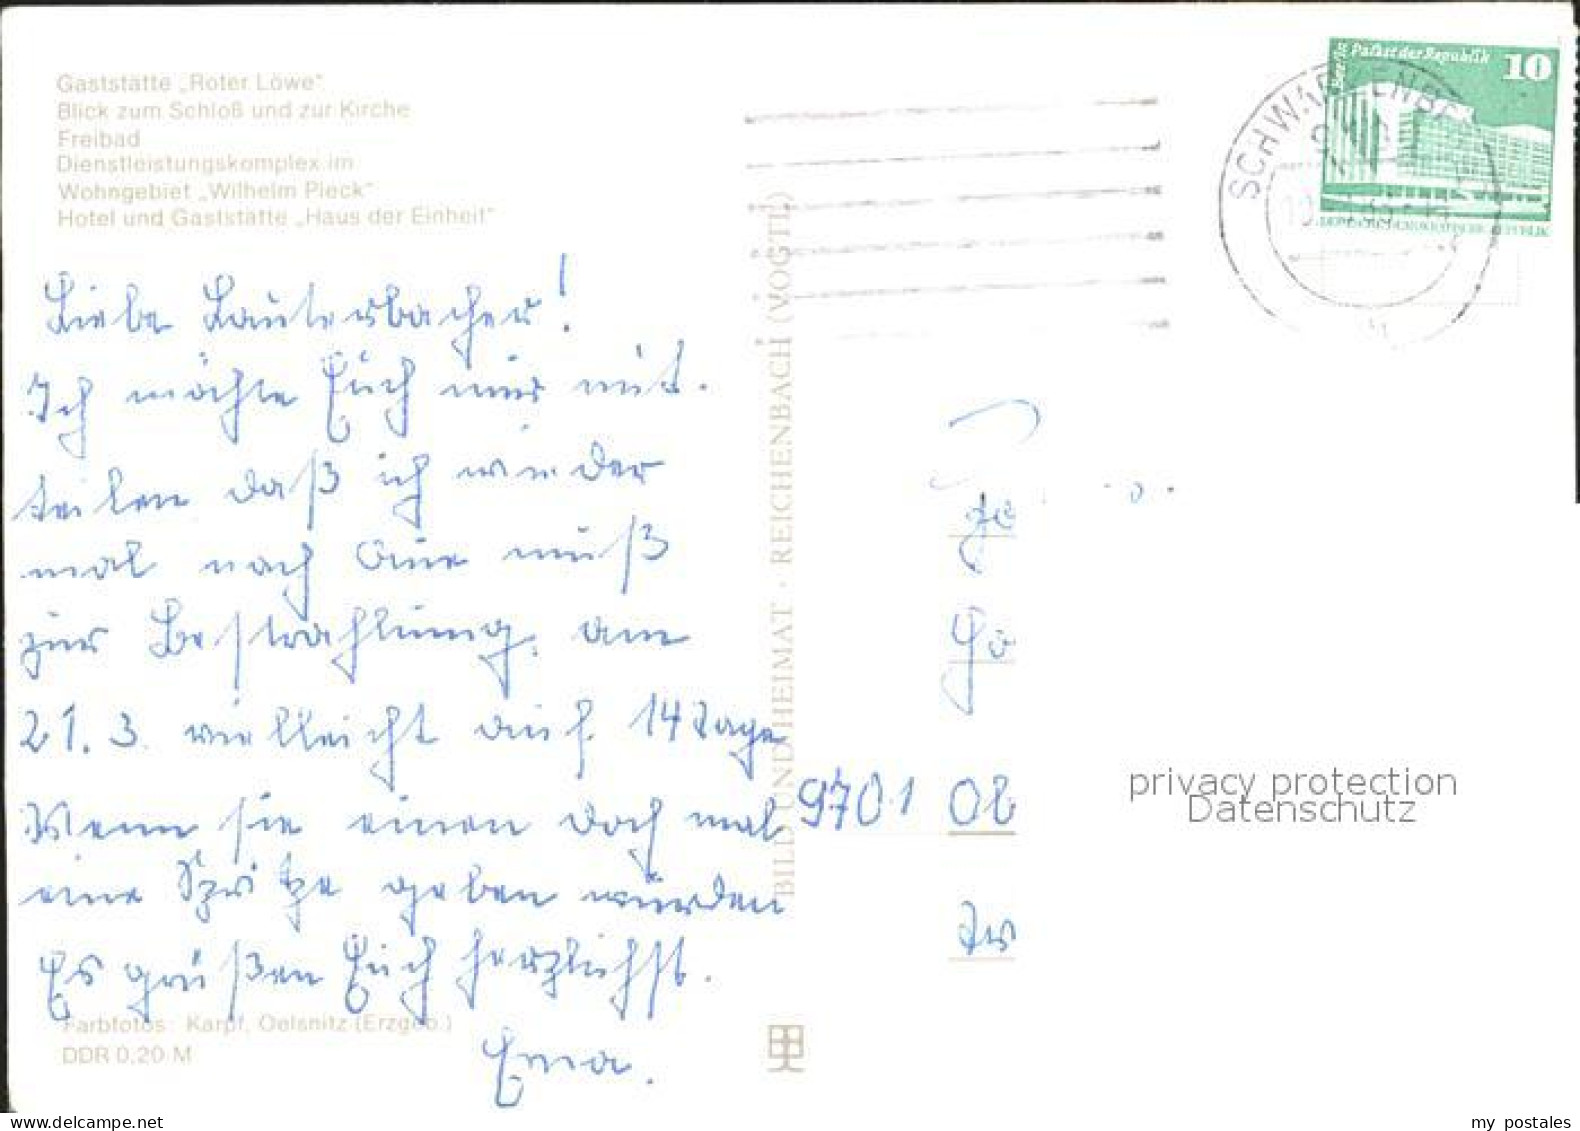 Gaststätte „Roter Löwe“
Blick zum Schloß und zur Kirche
Freibad
Dienstleistungskomplex im
Wohngebiet „Wilhelm Pieck“
Hotel und Gaststätte „Haus der Einheit“
Berlin Palast der Republik 10
DEUTSCHE DEMOKRATISCHE REPUBLIK
Liebe Lauterbacher!
Ich möchte Euch nur mit.
teilen daß ich wieder
mal nach Aue muß
zur Bestrahlung. am
21. 3. vielleicht auf 14 Tage
Wenn sie einen doch mal
eine Spritze geben würden
Es grüßen Euch herzlichst.
Erna.
BILD UND HEIMAT · REICHENBACH (VOGTL)
9701
privacy protection
Datenschutz
Farbfotos: Karpf, Oelsnitz (Erzgeb.)
DDR 0,20 M
my postales